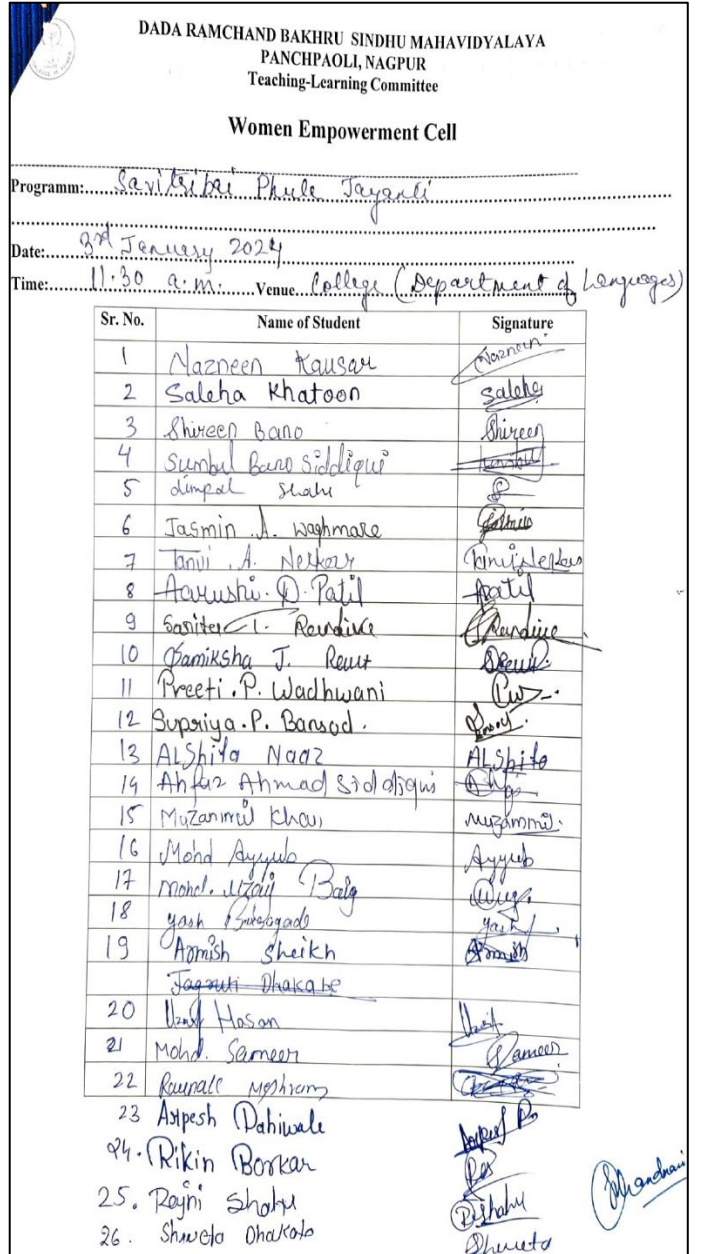 DADA RAMCHAND BAKHRU SINDHU MAHAVIDYALAYA
PANCHPAOLI, NAGPUR
Teaching-Learning Committee
Women Empowerment Cell
Programm: Savitribai Phule Jayanti
Date: 3rd January 2024
Time: 11:30 a.m. Venue College (Department of Languages)
Sr. No. Name of Student Signature
1 Nazneen Kausar Nazneen
2 Saleha Khatoon Saleha
3 Shireen Bano Shireen
4 Sumbul Bano Siddiqui
5 dimpal Shahu
6 Jasmin A. Waghmare
7 Tanvi A. Nerkar
8 Aarushi. D. Patil Patil
9
10 Samiksha J. Raut
11 Preeti. P. Wadhwani
12 Supriya. P. Bansod.
13 ALShifa Naaz ALShifa
14 Ahfaz Ahmad Siddiqui
15 Muzammil Khan Muzammil.
16 Mohd Ayyub Ayyub
17 Mohd. Uzaif Baig
18 yash yash
19 Armish Sheikh Armish
Jagruti Dhakate
20 Uzaif Hasan Uzaif
21 Mohd. Sameer Sameer
22 Raunak Meshram
23 Arpesh Dahiwale
24. Rikin Borkar
25. Rajni Shahu R.Shahu
26. Shweta Dhakate Shweta